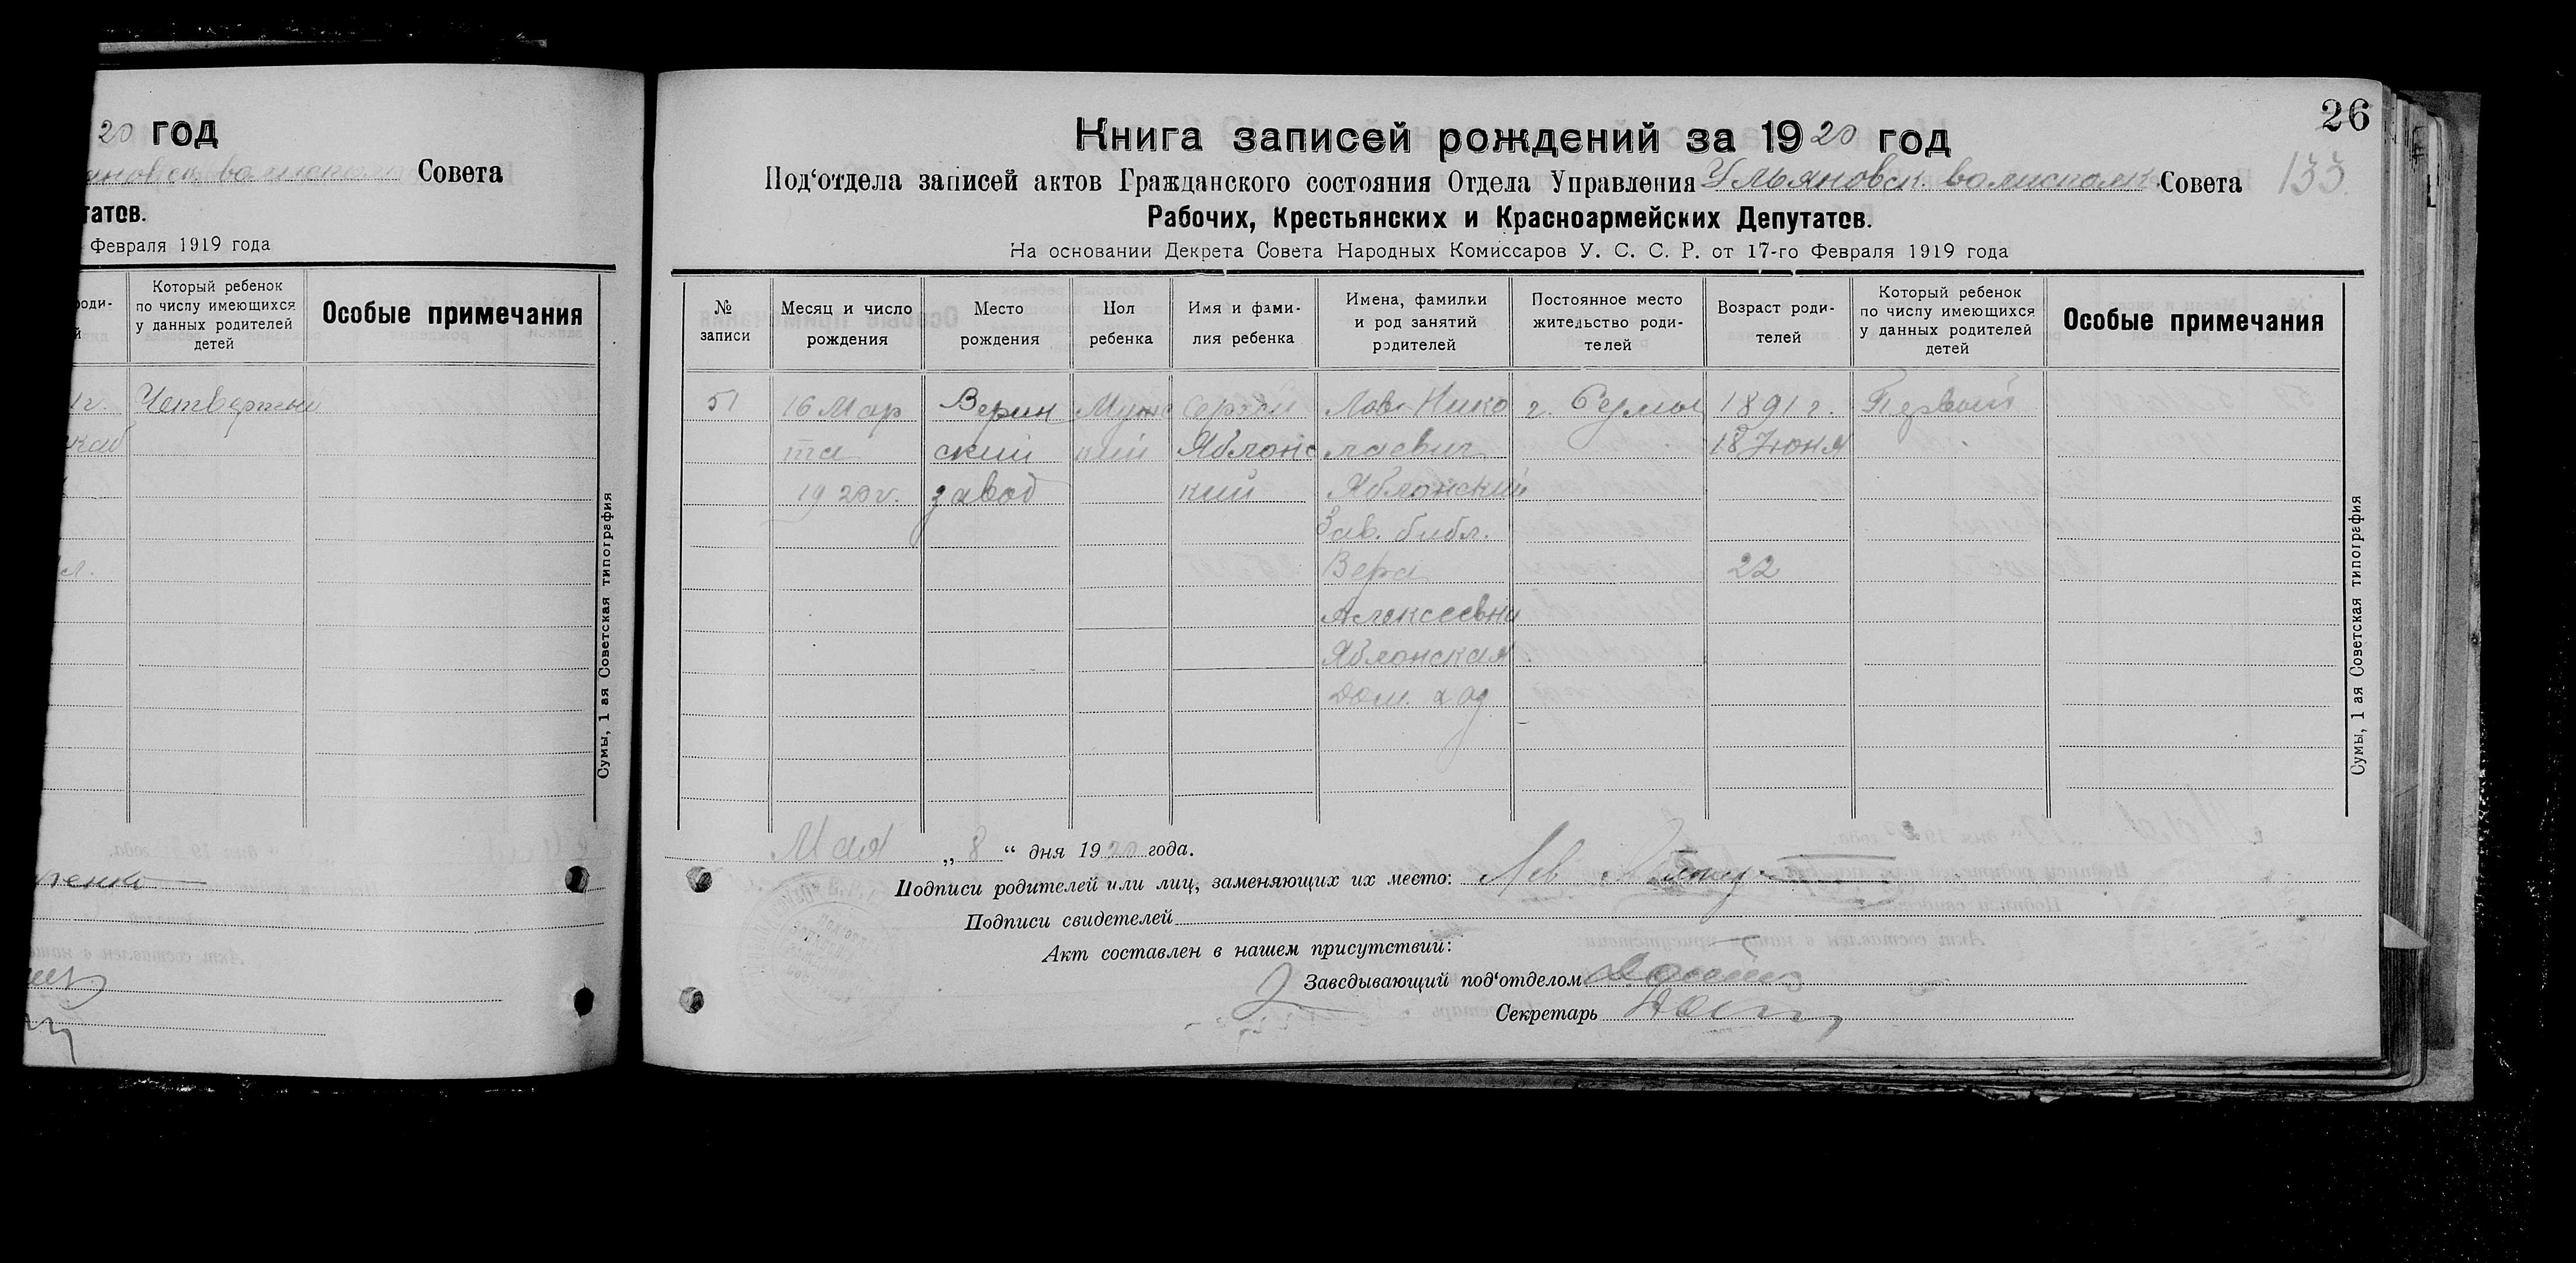 20 год
Совета
татов.
Февраля 1919 года
Который ребенок
по числу имеющихся
у данных родителей
детей
Особые примечания
Четвертый
Сумы, 1 ая Советская типография
26
133
Книга записей рождений за 1920 год
Под‘отдела записей актов Гражданского состояния Отдела Управления Ульяновск. волисполк. Совета
Рабочих, Крестьянских и Красноармейских Депутатов.
На основании Декрета Совета Народных Комиссаров У. С. С. Р. от 17-го Февраля 1919 года
№
записи
Месяц и число
рождения
Место
рождения
Пол
ребенка
Имя и фами-
лия ребенка
Имена, фамилии
и род занятий
родителей
Постоянное место
жительство роди-
телей
Возраст роди-
телей
Который ребенок
по числу имеющихся
у данных родителей
детей
Особые примечания
51 16 Мар Верин Мужс Сергей Лев Нико г. Сумы 1891 г. Первый
та ский кий Яблонс лаевич 18 Июня
1920 г. завод кий Яблонский
Зав. библ.
Вера 22
Алексеевна
Яблонская
Дом. хоз
Мая „ 8 “ дня 1920 года.
Подписи родителей или лиц, заменяющих их место: Лев
Подписи свидетелей
Акт составлен в нашем присутствии:
Заведывающий под‘отделом
Секретарь
Сумы, 1 ая Советская типография